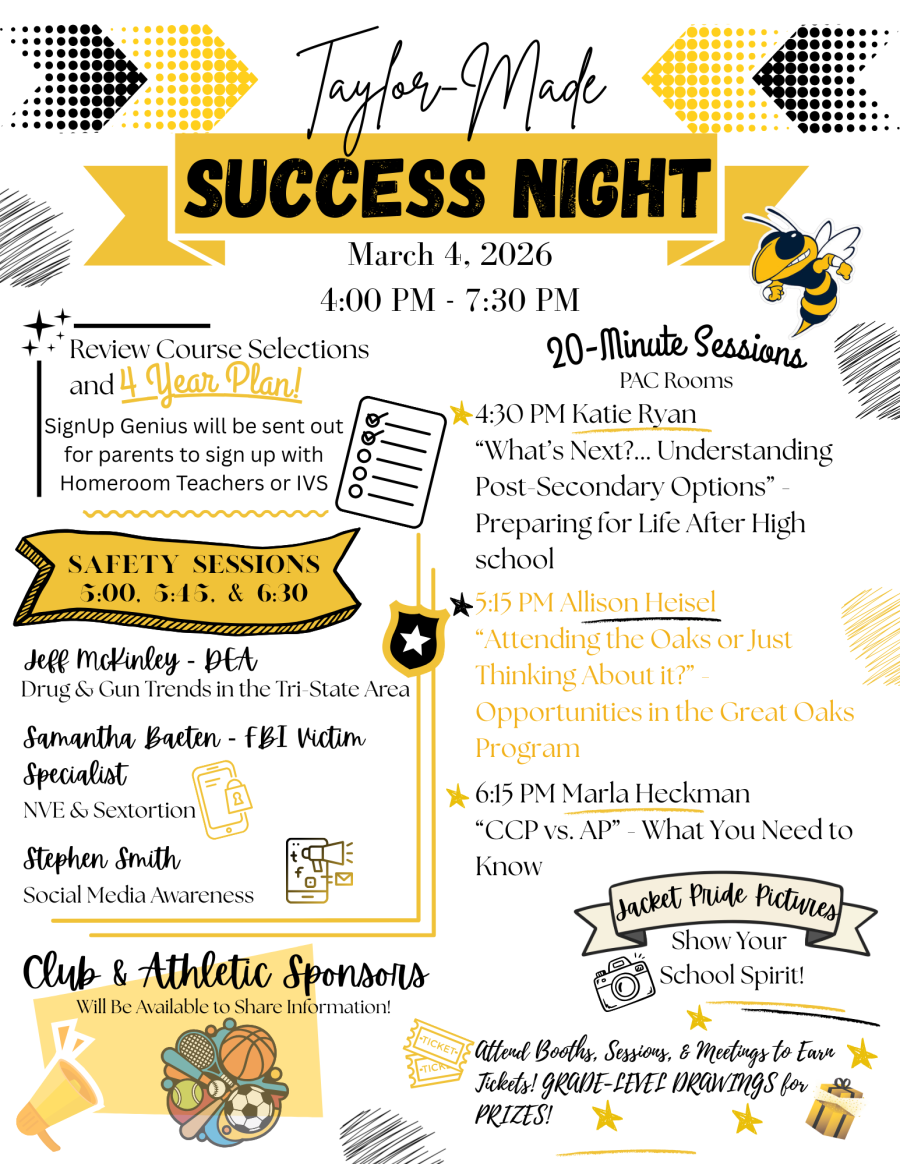 Taylor-Made
SUCCESS NIGHT
March 4, 2026
4:00 PM - 7:30 PM
Review Course Selections
and 4 Year Plan!
SignUp Genius will be sent out
for parents to sign up with
Homeroom Teachers or IVS
SAFETY SESSIONS
5:00, 5:45, & 6:30
Jeff McKinley - DEA
Drug & Gun Trends in the Tri-State Area
Samantha Baeten - FBI Victim
Specialist
NVE & Sextortion
Stephen Smith
Social Media Awareness
20-Minute Sessions
PAC Rooms
4:30 PM Katie Ryan
“What’s Next?... Understanding
Post-Secondary Options” -
Preparing for Life After High
school
5:15 PM Allison Heisel
“Attending the Oaks or Just
Thinking About it?” -
Opportunities in the Great Oaks
Program
6:15 PM Marla Heckman
“CCP vs. AP” - What You Need to
Know
Jacket Pride Pictures
Show Your
School Spirit!
Club & Athletic Sponsors
Will Be Available to Share Information!
TICKET
TICK
Attend Booths, Sessions, & Meetings to Earn
Tickets! GRADE-LEVEL DRAWINGS for
PRIZES!